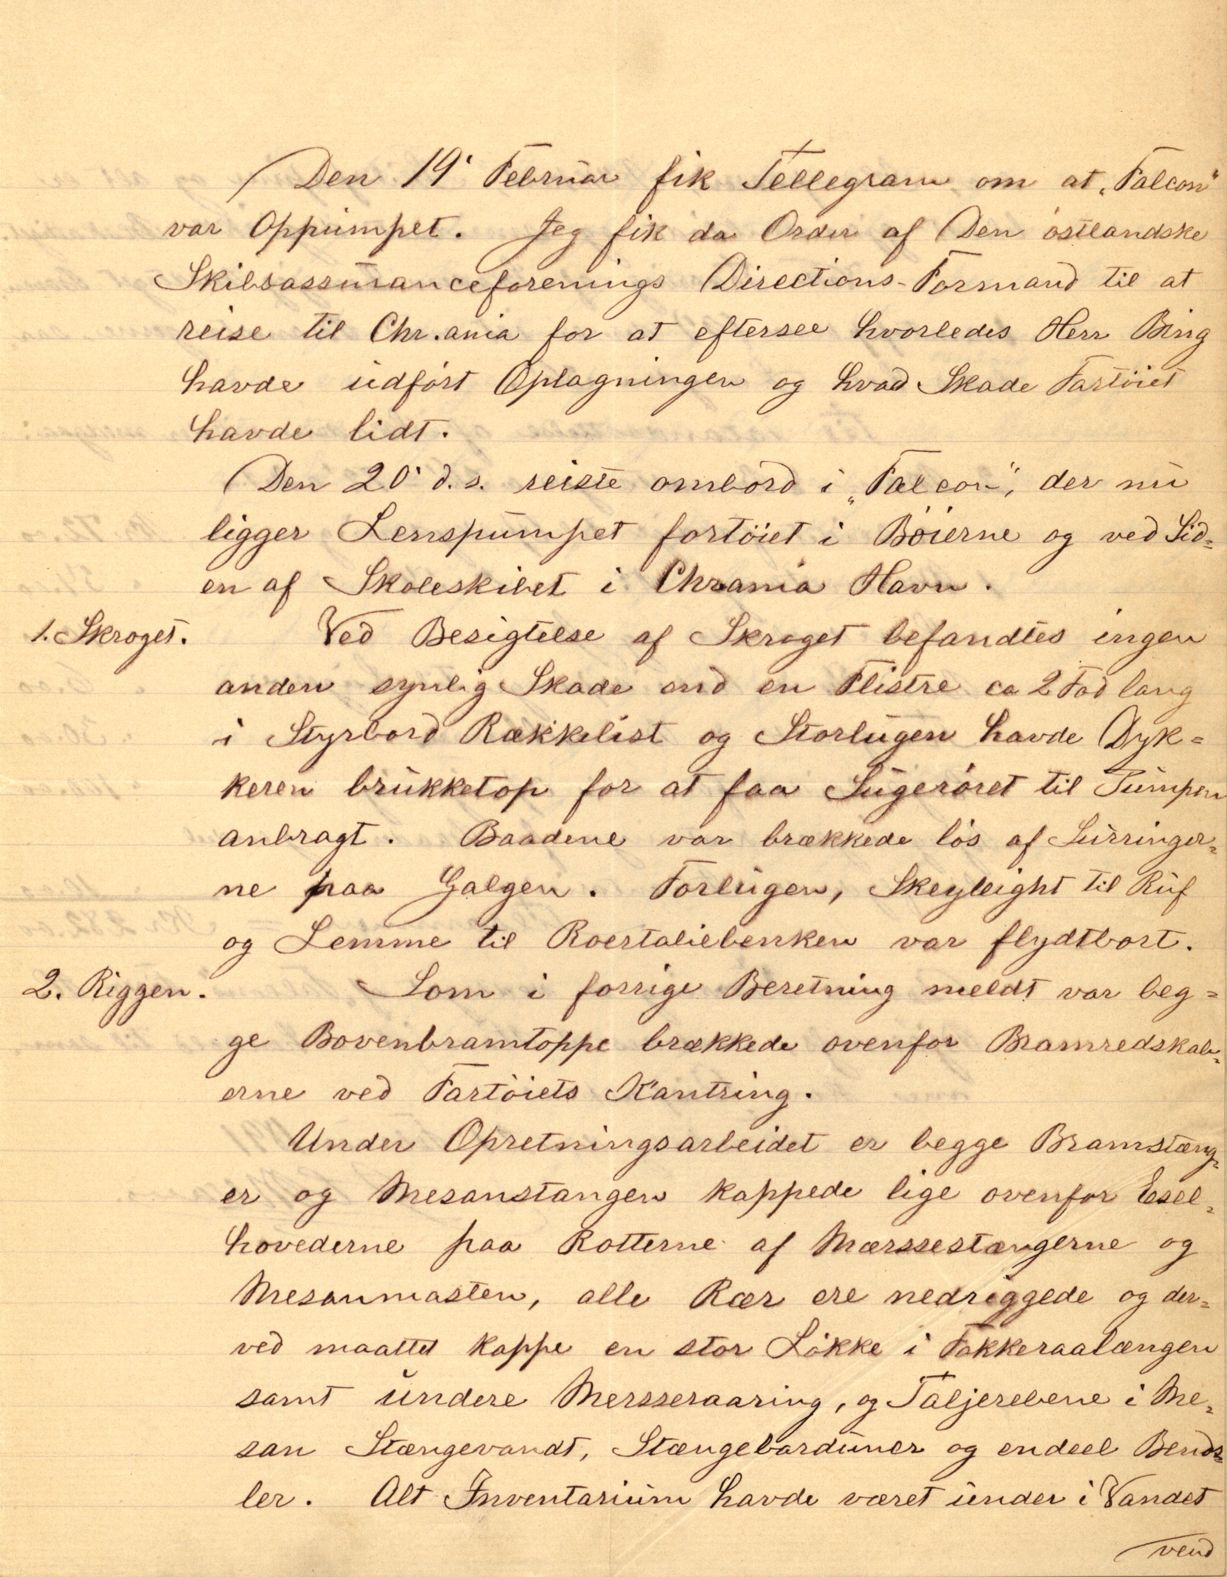 Den 19' Februar fik Tellegram om at „Falcon"
var Oppumpet. Jeg fik da Order af Den östlandske
Skibsassuranceforenings Directions-Formand til at
reise til Chr.ania for at eftersee hvorledes Herr Bing
havde udfört Optagningen og hvad Skade Fartöiet
havde lidt.
Den 20' d.s. reiste ombord i „Falcon", der nu
ligger Lenspumpet fortöiet i Böierne og ved Sid=
en af Skoleskibet i Chrania Havn.
1. Skroget. Ved Besigtelse af Skroget befandtes ingen
anden synlig Skade end en Flistre ca 2 Fod lang
i Styrbord Rækkelist og Storlugen havde Dyk=
keren brukketop for at faa Sugeröret til Pumpen
anbragt. Baadene var brækkede lös af Surringer=
ne paa Galgen. Forlugen, Skeyleight til Ruf
og Lemme til Roertaliebenken var flydtbort.
2. Riggen. Som i forrige Beretning meldt var beg=
ge Bovenbramtoppe brækkede ovenfor Bramredskab=
erne ved Fartöiets Kantring.
Under Opretningsarbeidet er begge Bramstæng=
er og Mesanstangen kappede lige ovenfor Esel=
hovederne paa Rotterne af Mærssestængerne og
Mesanmasten, alle Rær ere nedriggede og der=
ved maattet kappe en stor Lökke i Fokkeraalængen
samt undere Mersseraaring, og Taljerebene i Me=
san Stængevandt, Stængebarduner og endeel Bends=
ler. Alt Inventarium havde været under i Vandet
vend